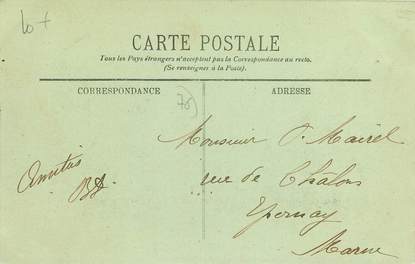 CARTE POSTALE
Tous les Pays étrangers n'acceptent pas la Correspondance au recto.
(Se renseigner à la Poste).
CORRESPONDANCE
ADRESSE
76
Monsieur P. Mairel
rue de Châlons
Epernay
Marne
Amitiés